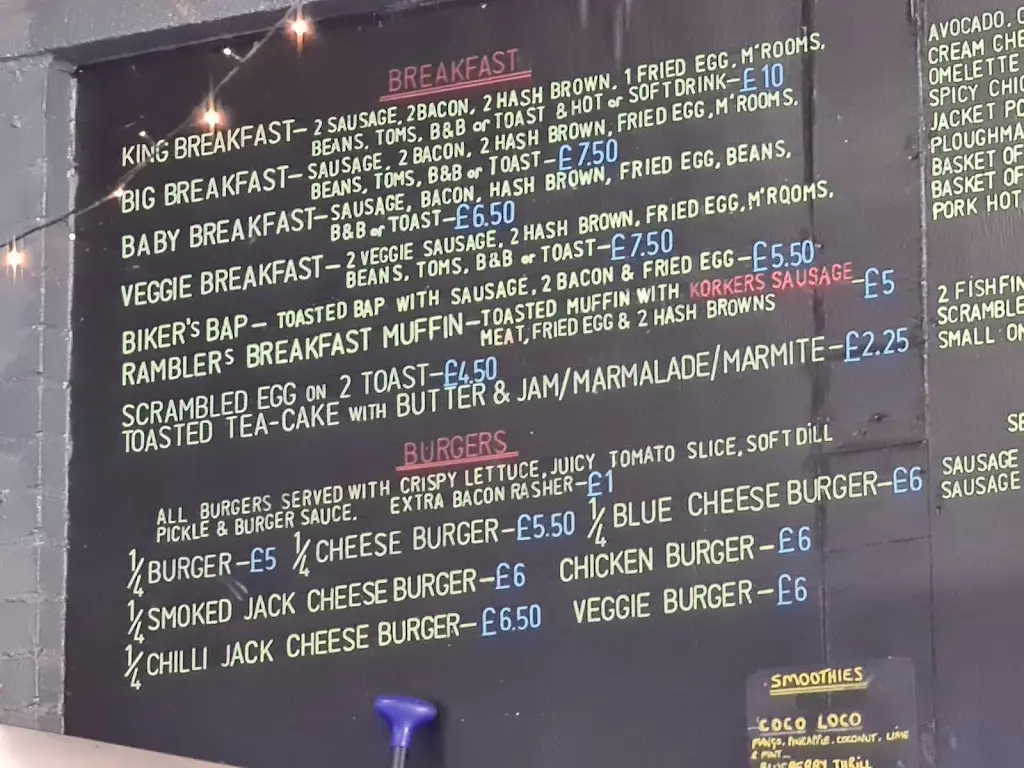 BREAKFAST
KING BREAKFAST- 2 SAUSAGE, 2 BACON, 2 HASH BROWN, 1 FRIED EGG, M'ROOMS,
BEANS, TOMS, B&B or TOAST & HOT or SOFT DRINK-£10
BIG BREAKFAST- SAUSAGE, 2 BACON, 2 HASH BROWN, FRIED EGG, M'ROOMS,
BEANS, TOMS, B&B or TOAST-£7.50
BABY BREAKFAST- SAUSAGE, BACON, HASH BROWN, FRIED EGG, BEANS,
B&B or TOAST-£6.50
VEGGIE BREAKFAST- 2 VEGGIE SAUSAGE, 2 HASH BROWN, FRIED EGG, M'ROOMS,
BEANS, TOMS, B&B or TOAST-£7.50
BIKER'S BAP- TOASTED BAP WITH SAUSAGE, 2 BACON & FRIED EGG-£5.50
RAMBLERS BREAKFAST MUFFIN-TOASTED MUFFIN WITH KORKERS SAUSAGE-£5
MEAT, FRIED EGG & 2 HASH BROWNS
SCRAMBLED EGG ON 2 TOAST-£4.50
TOASTED TEA-CAKE WITH BUTTER & JAM/MARMALADE/MARMITE-£2.25
BURGERS
ALL BURGERS SERVED WITH CRISPY LETTUCE, JUICY TOMATO SLICE, SOFT DILL
PICKLE & BURGER SAUCE. EXTRA BACON RASHER-£1
1/4 BURGER-£5 1/4 CHEESE BURGER-£5.50 1/4 BLUE CHEESE BURGER-£6
1/4 SMOKED JACK CHEESE BURGER-£6 CHICKEN BURGER-£6
1/4 CHILLI JACK CHEESE BURGER-£6.50 VEGGIE BURGER-£6
AVOCADO,
CREAM
OMELETTE
SPICY
JACKET
BASKET OF
BASKET OF
PORK HOT
2
SMALL
SAUSAGE
SAUSAGE
SMOOTHIES
COCO LOCO
MANGO, PINEAPPLE, COCONUT, LIME
& MINT
BLUEBERRY THRILL